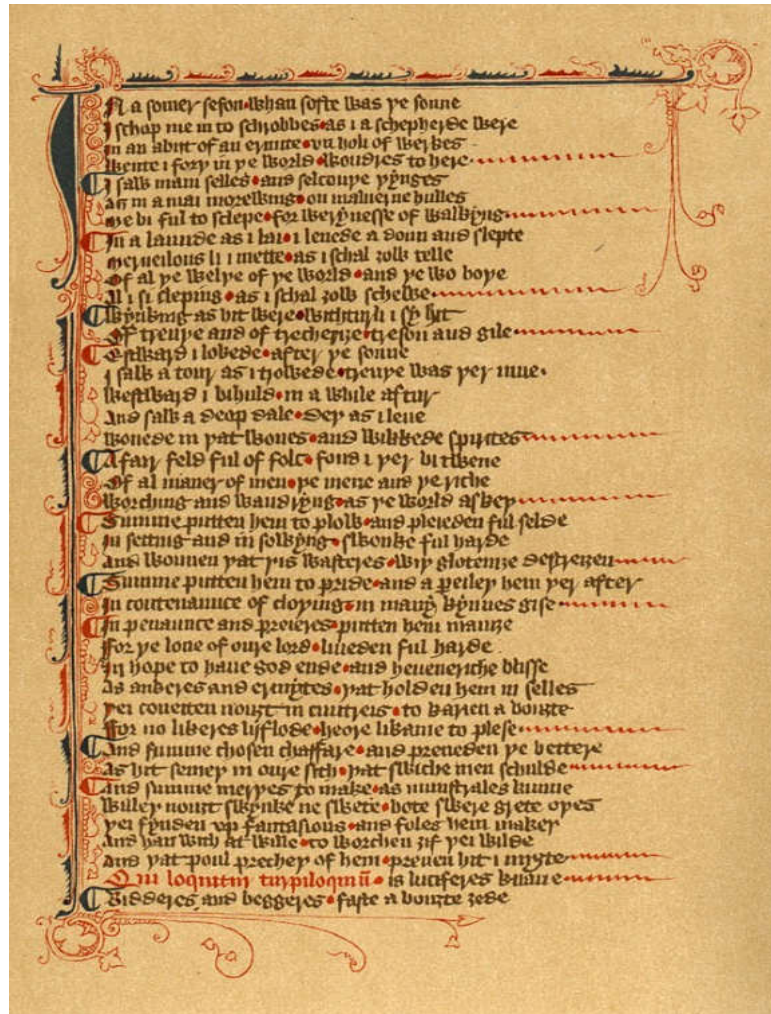 IN a somer seson•whan softe was þe sonne
I schop me in to schrobbes•as i a schepherde were
In an abit of an ermite•vn holi of werkes
Wente i forþ in þe world•wondres to here
I saw mani selles•and selcouþe þẏnges
As in a mai morewing•on maluerne hulles
Me bi ful to sclepe•for werẏnesse of walkẏng
In a launde as i lai•i lenede a doun and slepte
Merueilous li i mette•as i schal ȝow telle
Of al þe welþe of þe world•and þe wo boþe
Al i si sleping•as i schal ȝow schewe
Wẏnking as hit were•witturli i sẏ hit
Of treuþe and of trecherize•treson and gile
Estward i lokede•after þe sonne
I saw a tour as i trowede•treuþe was þer inne•
Westward i bihuld•in a while aftur
And saw a deop dale•deþ as i leue
Wonede in þat wones•and wikkede spirites
A fair feld ful of folc•fond i þer bitwene
Of al maner of men•þe mene and þe riche
Worching and wandrẏng•as þe world askeþ
Summe putten hem to plow•and pleieden ful selde
In setting and in sowẏng•swonke ful harde
And wonnen þat þis wasteres•wiþ glotenize destrezen
Summe putten hem to pride•and a peiley hem þer after
In contenaunce of cloþing•in manẏ kẏnnes gise
In penaunce and preieres•putten hem manize
For þe loue of oure lord•liueden ful harde
In hope to haue god ende•and heueneriche blisse
As ankeres and ermẏtes•þat holden hem in selles
Þei coueiten nouȝt in cuntreis•to karien a bouȝte
For no likeres lijflode•heore likame to plese
And summe chosen chaffare•and preueden þe bettere
As hit semeþ in oure sith•þat swiche men schulde
And summe merþes to make•as munstrales kunne
Willeþ nouȝt swẏnke ne swete•bote swere grete oþes
Þei fẏnden vp fantasious•and foles hem makeþ
And han with at wille•to worchen ȝif þei wilde
And þat poul precheþ of hem•preuen hit i miȝte
Qui loquitur turpiloquiū•is luciferes knaue
Bidderes and beggeres•faste a bouȝte ȝede